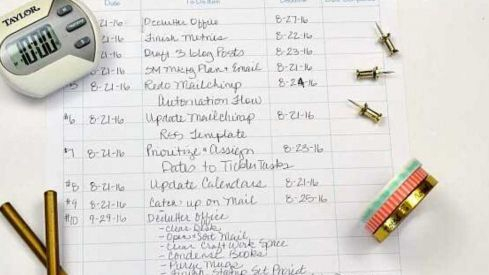 TAYLOR
10:00
Date To Do Item Deadline Date Completed
21-16 Declutter Office 8-27-16
21-16 Finish Metrics 8-22-16
-21-16 Draft 3 blog Posts 8-23-16
8-21-16 SM Mktg Plan + Email 8-21-16
#5 8-21-16 Redo Mailchimp 8-24-16
Automation Flow
#6 8-21-16 Update Mailchimp 8-21-16
RSS Template
#7 8-21-16 Prioritize + Assign 8-23-16
Dates to Tickler Tasks
#8 8-21-16 Update Calendars 8-21-16
#9 8-21-16 Catch up on Mail 8-25-16
#10 9-29-16 Declutter Office
- Clear Desk
- Open + Sort Mail
- Clear Craft Work Space
- Condense Books
- Purge Mugs
- Finish Stamp Set Project